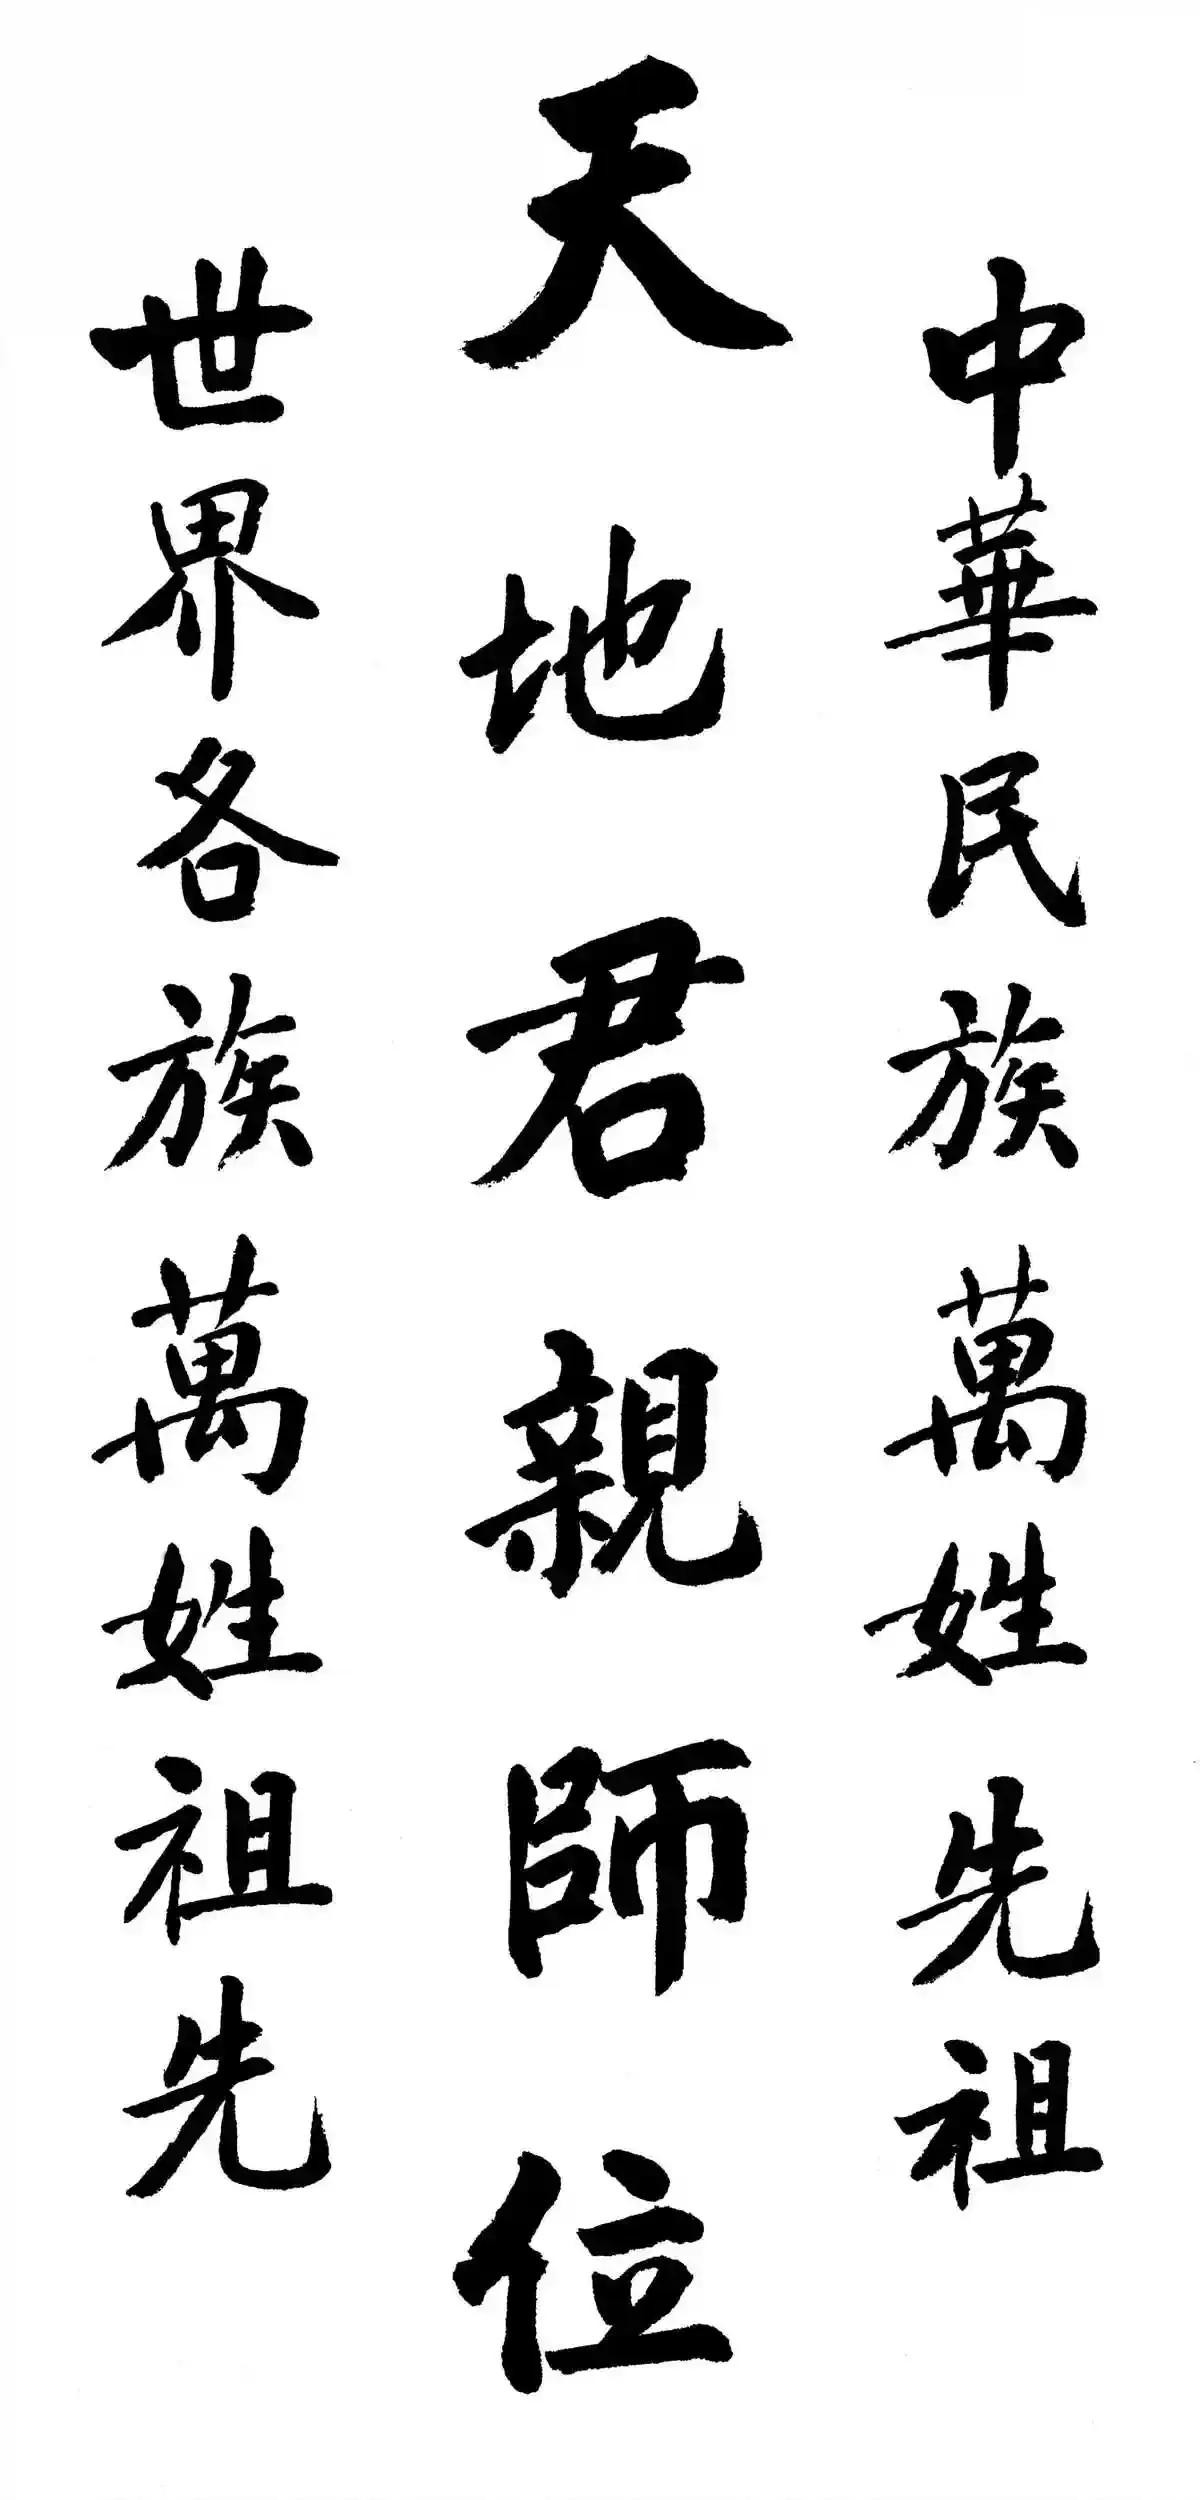 中華民族萬姓先祖
天地君親師位
世界各族萬姓祖先